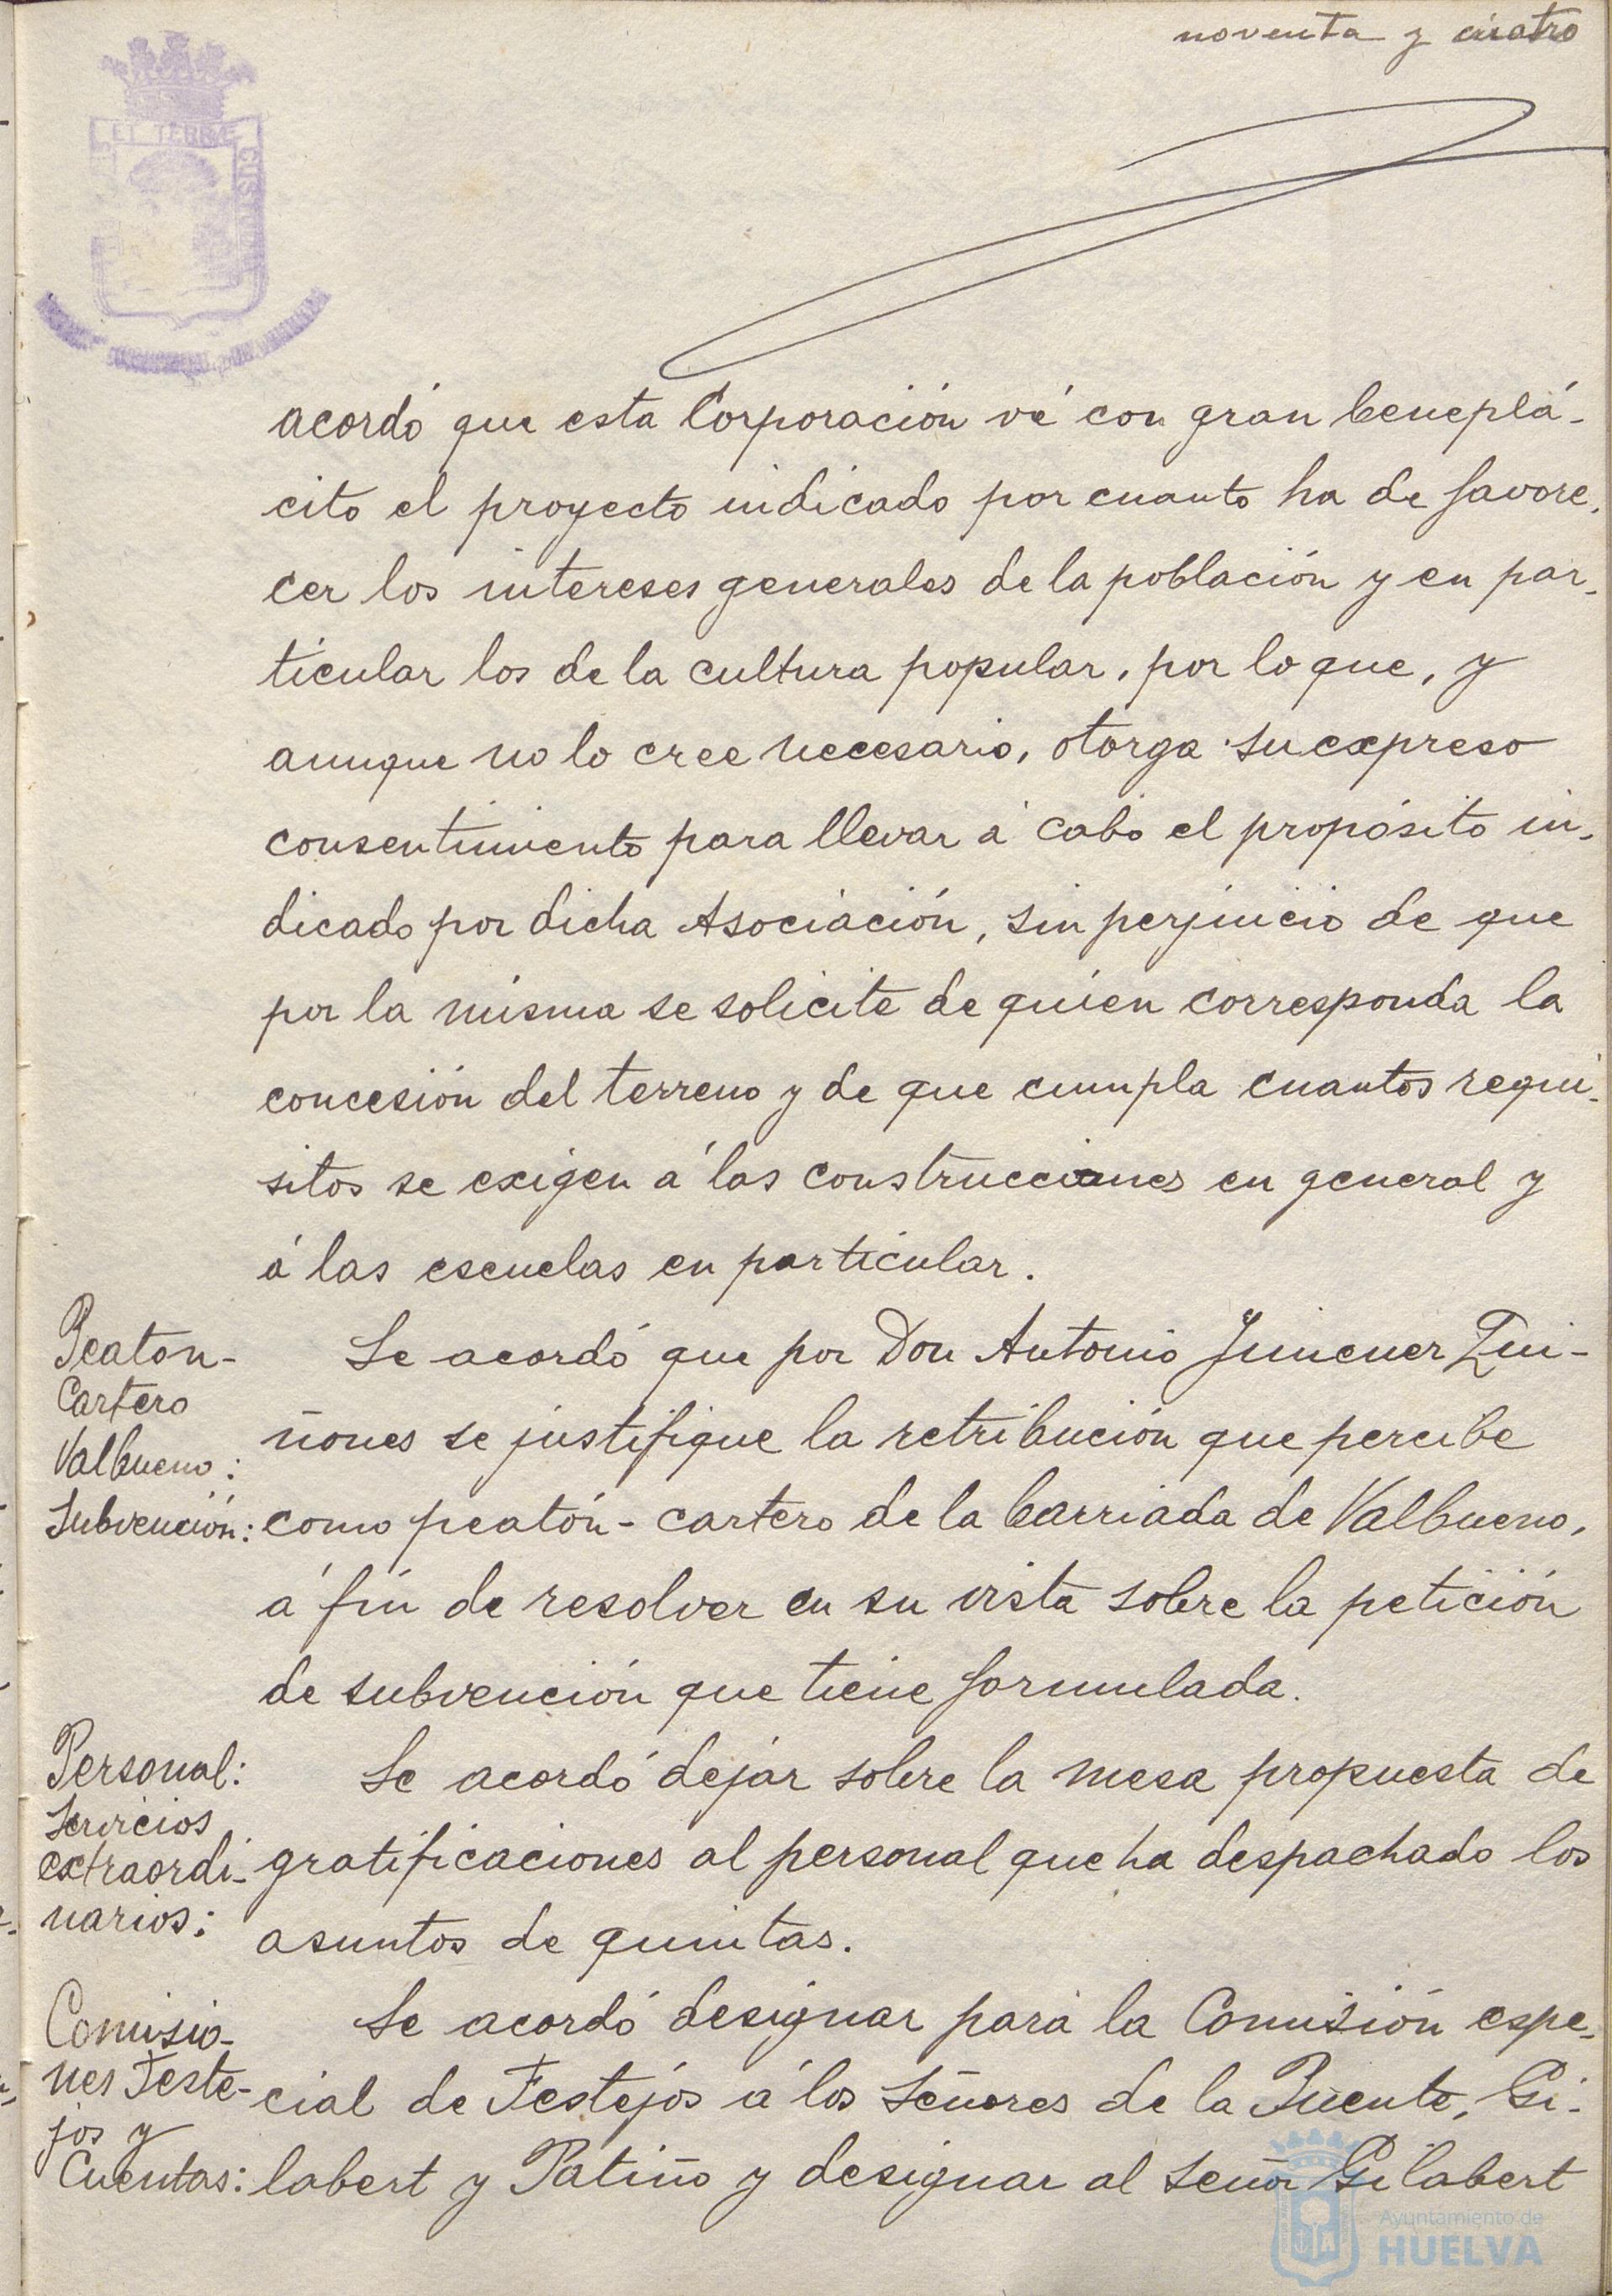 noventa y cuatro
ET TERRÆ
acordó que esta Corporación vé con gran beneplá-
cito el proyecto indicado por cuanto ha de favore-
cer los intereses generales de la población y en par-
ticular los de la cultura popular, por lo que, y
aunque no lo cree necesario, otorga su expreso
consentimiento para llevar á cabo el propósito in-
dicado por dicha Asociación, sin perjuicio de que
por la misma se solicite de quien corresponda la
concesión del terreno y de que cumpla cuantos requi-
sitos se exigen á las construcciones en general y
á las escuelas en particular.
Peaton-
Cartero
Valbueno:
Subvención:
Se acordó que por Don Antonio Jimenez Qui-
ñones se justifique la retribución que percibe
como peatón-cartero de la barriada de Valbueno,
á fin de resolver en su vista sobre la petición
de subvención que tiene formulada.
Personal:
Servicios
extraordi-
narios:
Se acordó dejar sobre la mesa propuesta de
gratificaciones al personal que ha despachado los
asuntos de quintas.
Comisio-
nes Feste-
jos y
Cuentas:
Se acordó designar para la Comisión espe-
cial de Festejos á los Señores de la Puente, Gi-
labert y Patiño y designar al Señor Gilabert
Ayuntamiento de
HUELVA